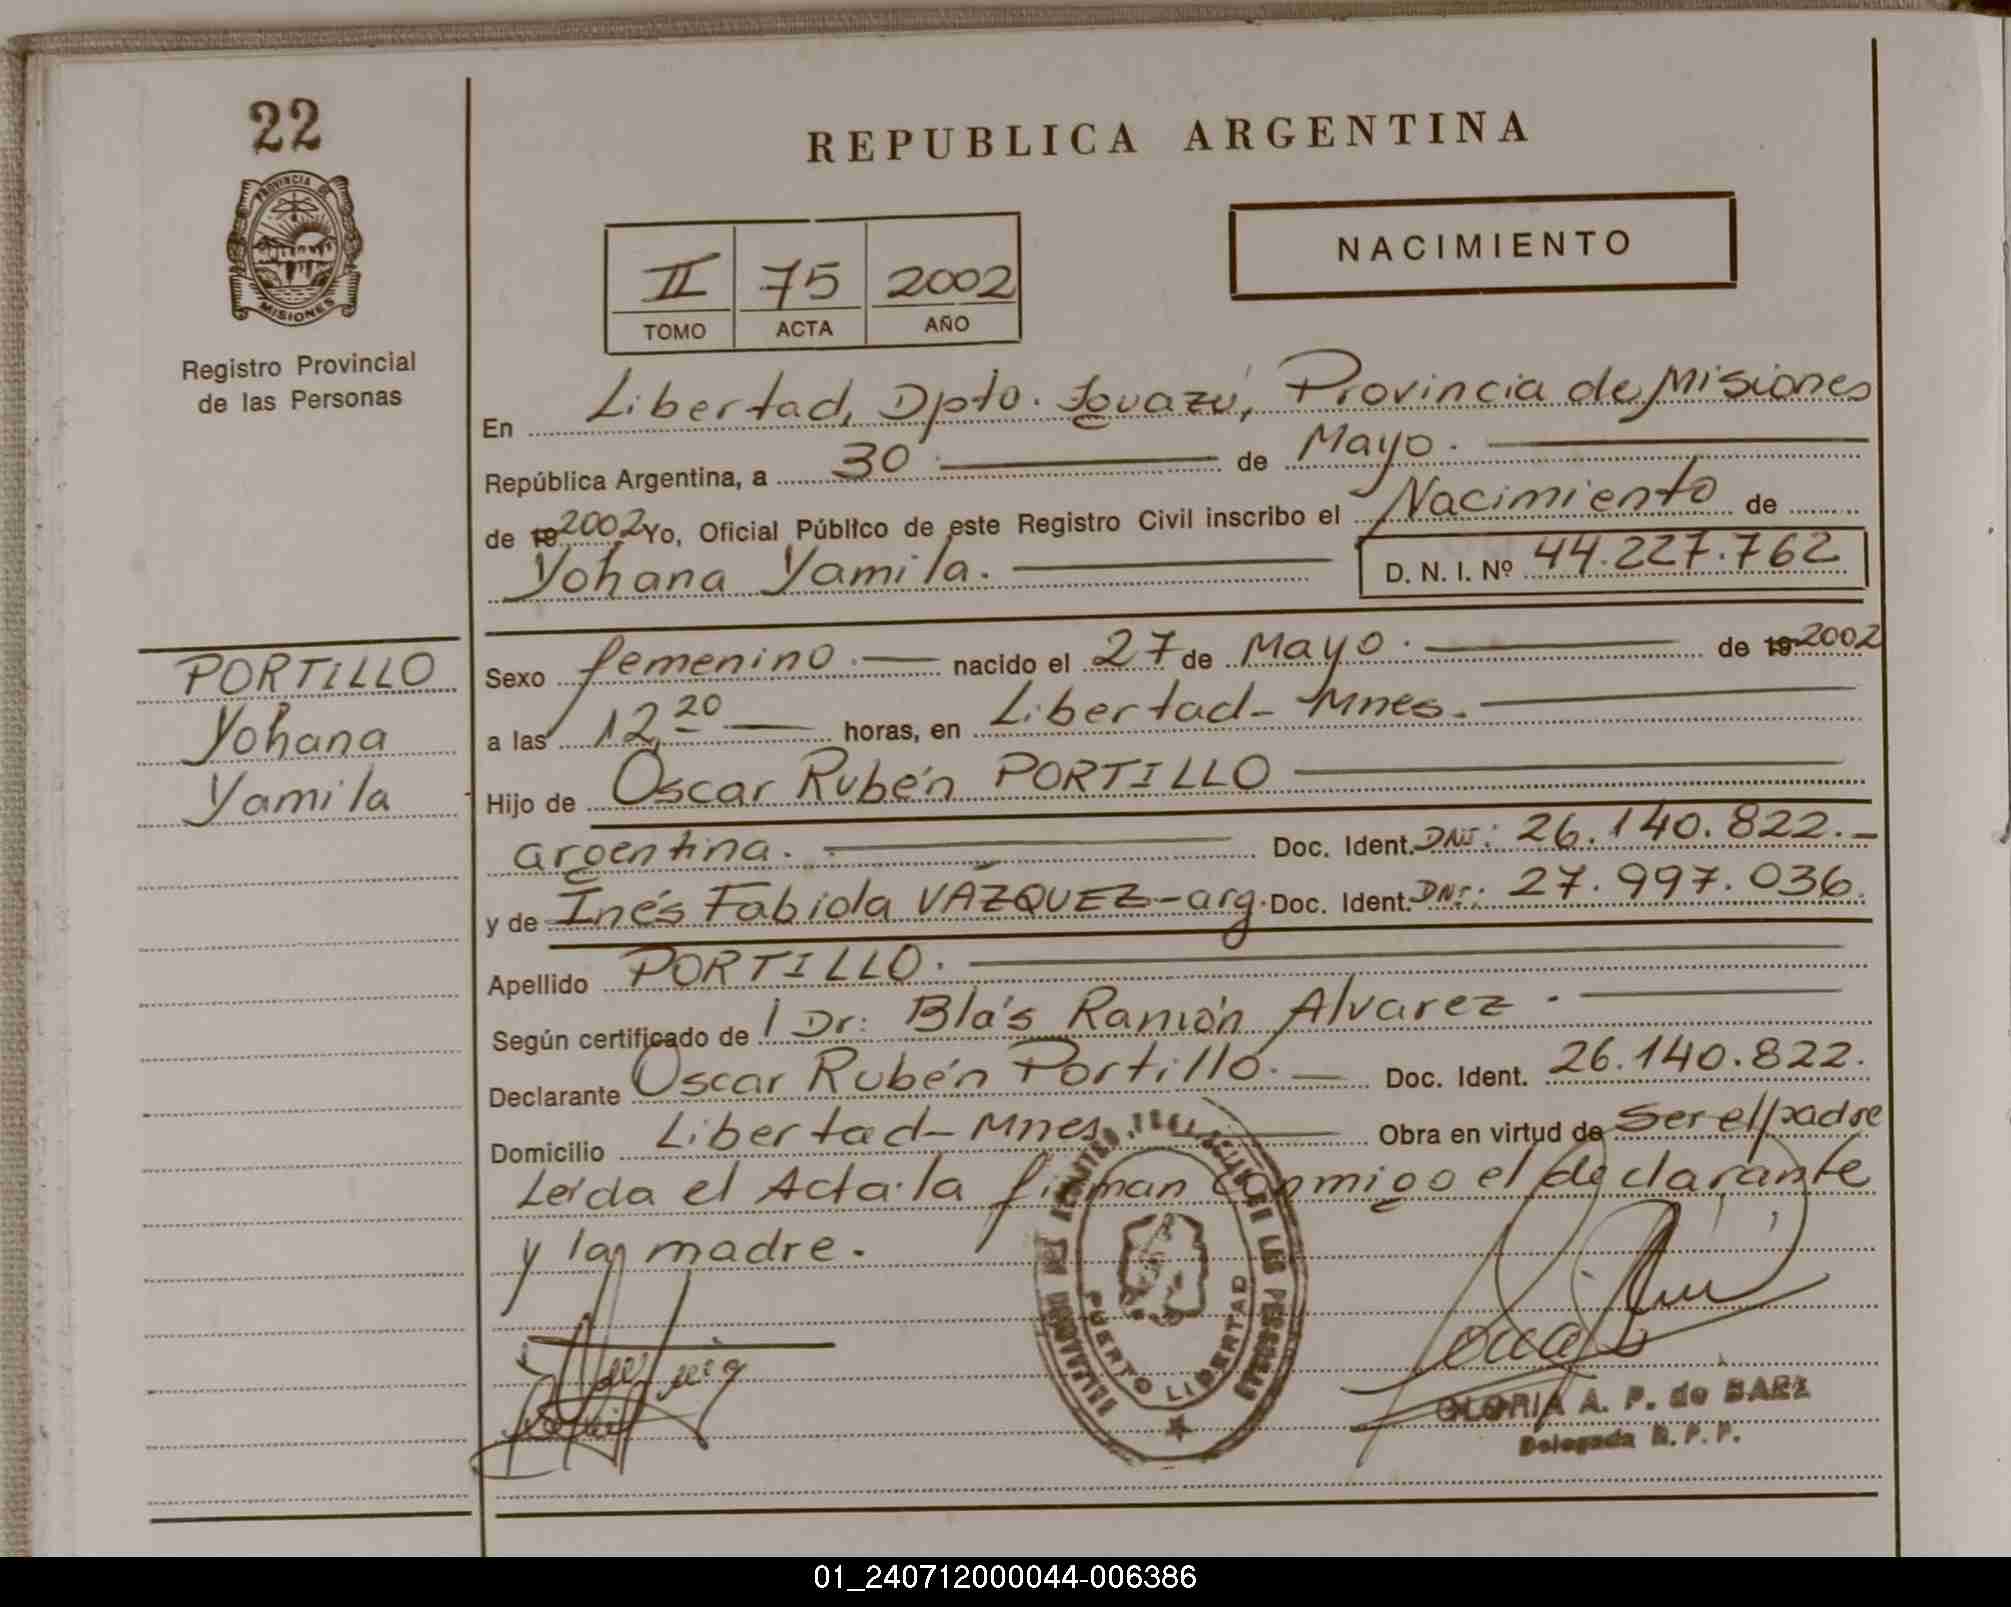 22
PROVINCIA DE
MISIONES
Registro Provincial
de las Personas
REPUBLICA ARGENTINA
NACIMIENTO
II 75 2002
TOMO ACTA AÑO
En Libertad, Dpto. Iguazú, Provincia de Misiones
República Argentina, a 30 de Mayo.
de 19 2002 Yo, Oficial Público de este Registro Civil inscribo el Nacimiento de
Yohana Yamila. D. N. I. Nº 44.227.762
PORTILLO
Yohana
Yamila
Sexo femenino. nacido el 27 de Mayo. de 19 2002
a las 12,20 horas, en Libertad - Mnes.
Hijo de Oscar Rubén PORTILLO
argentina. Doc. Ident. DNI: 26.140.822.-
y de Inés Fabiola VÁZQUEZ - arg. Doc. Ident. DNI: 27.997.036.
Apellido PORTILLO.
Según certificado de l Dr: Blás Ramón Alvarez.
Declarante Oscar Rubén Portillo. Doc. Ident. 26.140.822.
Domicilio Libertad - Mnes. Obra en virtud de Ser el padre
Leída el Acta la firman conmigo el declarante
y la madre.
PUERTO LIBERTAD
GLORIA A. P. de BAEZ
Delegada R. P. P.
01_240712000044-006386